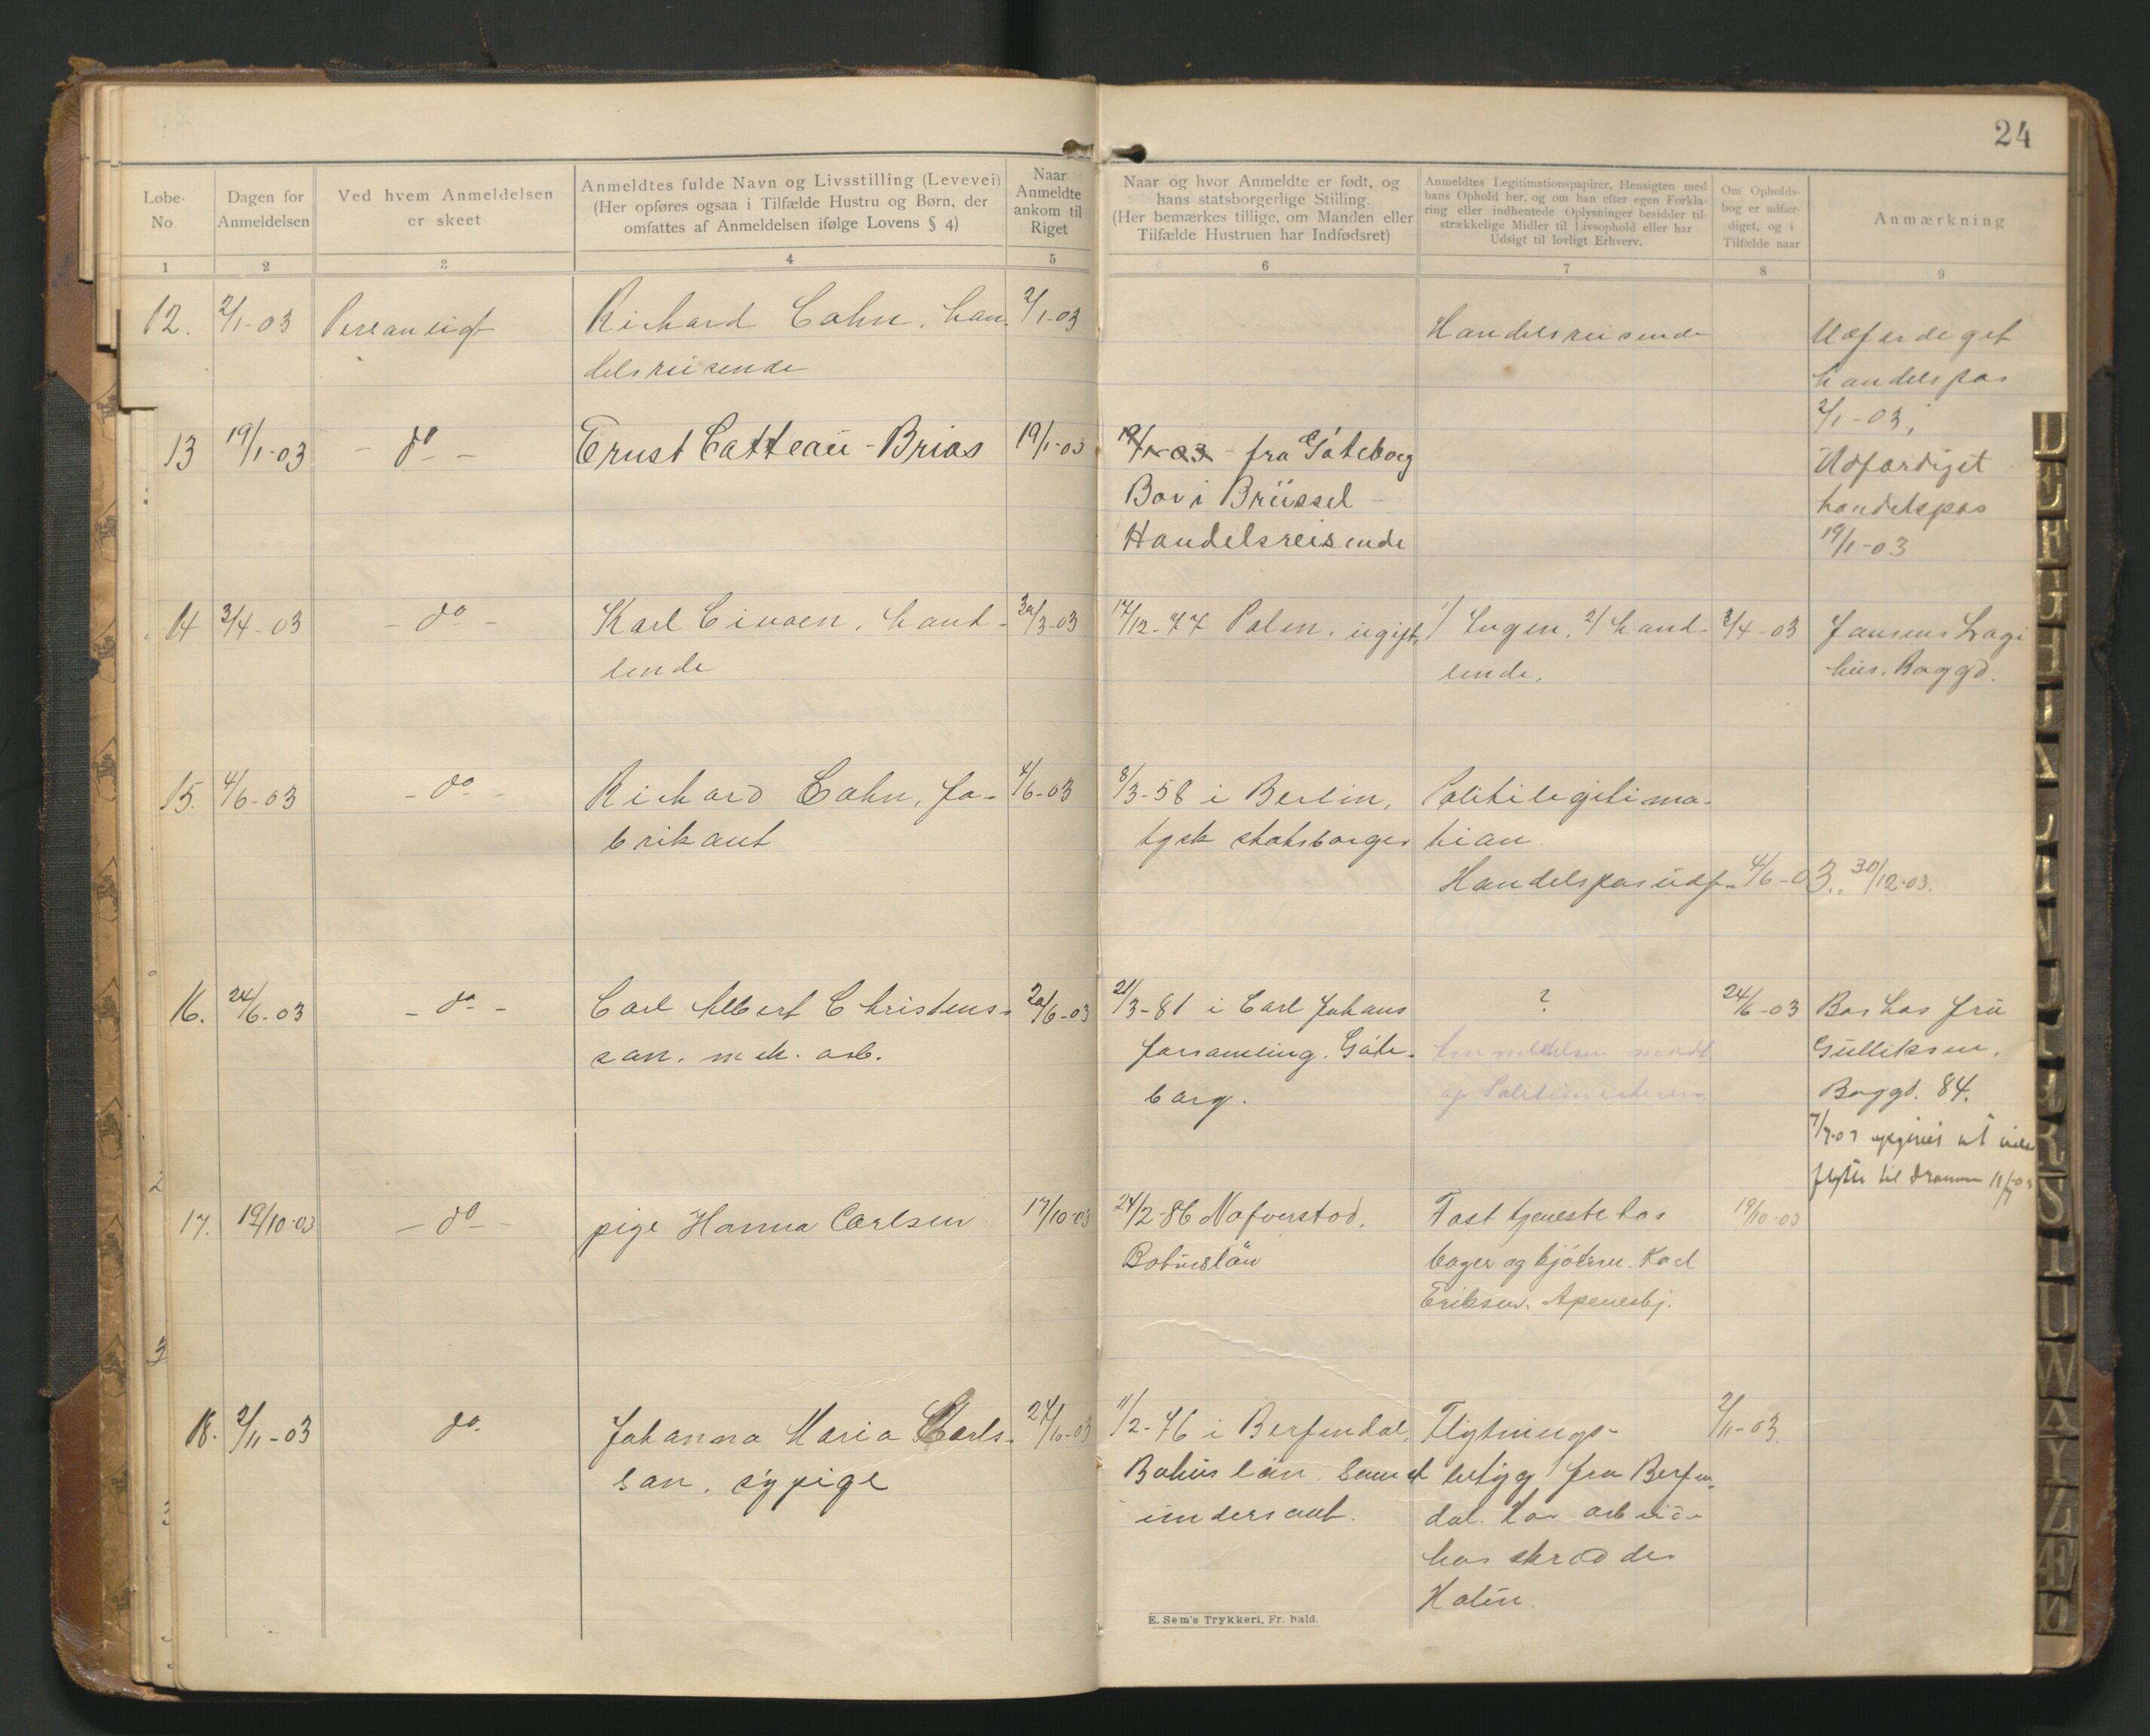 24
Løbe-
No.
Dagen for
Anmeldelsen
Ved hvem Anmeldelsen
er skeet
Anmeldtes fulde Navn og Livsstilling (Levevei)
(Her opføres ogsaa i Tilfælde Hustru og Børn, der
omfattes af Anmeldelsen ifølge Lovens § 4)
Naar
Anmeldte
ankom til
Riget
Naar og hvor Anmeldte er født, og
hans statsborgerlige Stiilling.
(Her bemærkes tillige, om Manden eller
Tilfælde Hustruen har Indfødsret)
Anmeldtes Legitimationspapirer, Hensigten med
hans Ophold her, og om han efter egen Forkla-
ring eller indhentede Oplysninger besidder til-
strækkelige Midler til Livsophold eller har
Udsigt til lovligt Erhverv.
Om Opholds-
bog er udfær-
diget, og i
Tilfælde naar
Anmærkning
1 2 3 4 5 6 7 8 9
12. 2/1-03 Personligt Richard Cohn, han- 2/1-03 Handelsreisende Udfærdiget
delsreisende handelspas
2/1-03,
13 19/1-03 - do - Ernst Catteau-Brias 19/1-03 19/1-03 - fra Göteborg Udfærdiget
Bor i Brüssel - handelspas
Handelsreisende 19/1-03
14 3/4-03 - do - Karl , hand- /3-03 17/12-77 Polen, ugift, 1/ Ingen, 2/ hand- 3/4-03 Jansens Logi
lende lende. hus. Boggd.
15. 4/6-03 - do - Richard Cohn, fa- 4/6-03 8/3-58 i Berlin, Politilegitima-
brikant tysk statsborger tion.
Handelspas udf. 4/6-03., 30/12-03.
16. 24/6-03 - do - Carl Albert Christens- 20/6-03 21/3-81 i Carl Johans ? 24/6-03 Bor hos fru
son. mek. arb. forsamling. Göte- Anmeldelsen modt. Gulliksen,
borg. af Politimesteren Boggd. 84.
opgivet at ville
flytte til Drammen 11/7-03
17. 19/10-03 - do - pige Hanna Carlsen 17/10-03 24/2-86 Nafverstad, Fast tjeneste hos 19/10-03
Bohuslän bager og kjøbm. Karl
Eriksen. Apenesbj.
18. 2/11-03 do. Johanna Maria Carls- 24/10-03 11/2-76 i Berfendal, Flytnings- 2/11-03.
son. sypige Bohuslän. Svensk betyg fra Berfen-
undersaat. dal. Har arbeide
hos skrædder
Holm.
E. Sem's Trykkeri, Fr.hald.